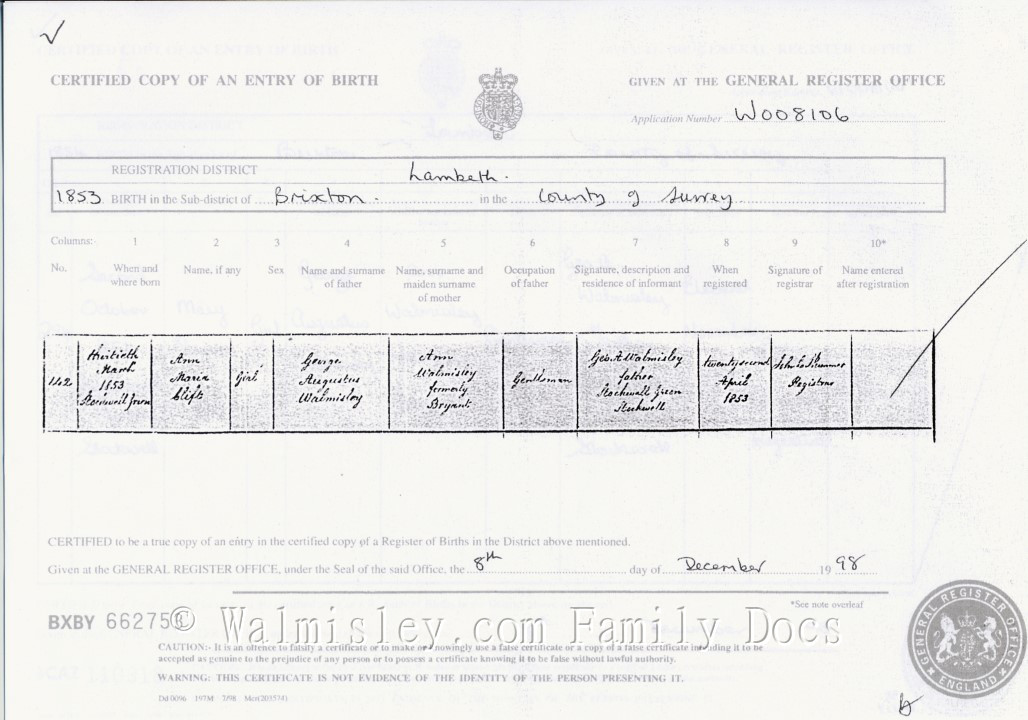 CERTIFIED COPY OF AN ENTRY OF BIRTH
GIVEN AT THE GENERAL REGISTER OFFICE
Application Number W008106
REGISTRATION DISTRICT Lambeth.
1853 BIRTH in the Sub-district of Brixton. in the County of Surrey
Columns:- 1 2 3 4 5 6 7 8 9 10*
No. When and where born Name, if any Sex Name and surname of father Name, surname and maiden surname of mother Occupation of father Signature, description and residence of informant When registered Signature of registrar Name entered after registration
142 March 1853 Stockwell Green
Ann Maria Clift
Girl
George Augustus Walmisley
Ann Walmisley formerly Bryant
Gentleman
Geo. A Walmisley father Stockwell Green Stockwell
twenty second April 1853
Registrar
CERTIFIED to be a true copy of an entry in the certified copy of a Register of Births in the District above mentioned.
Given at the GENERAL REGISTER OFFICE, under the Seal of the said Office, the 8th day of December 1998
*See note overleaf
BXBY 662753
© Walmisley.com Family Docs
CAUTION:- It is an offence to falsify a certificate or to make or knowingly use a false certificate or a copy of a false certificate intending it to be
accepted as genuine to the prejudice of any person or to possess a certificate knowing it to be false without lawful authority.
WARNING: THIS CERTIFICATE IS NOT EVIDENCE OF THE IDENTITY OF THE PERSON PRESENTING IT.
GENERAL REGISTER OFFICE
ENGLAND